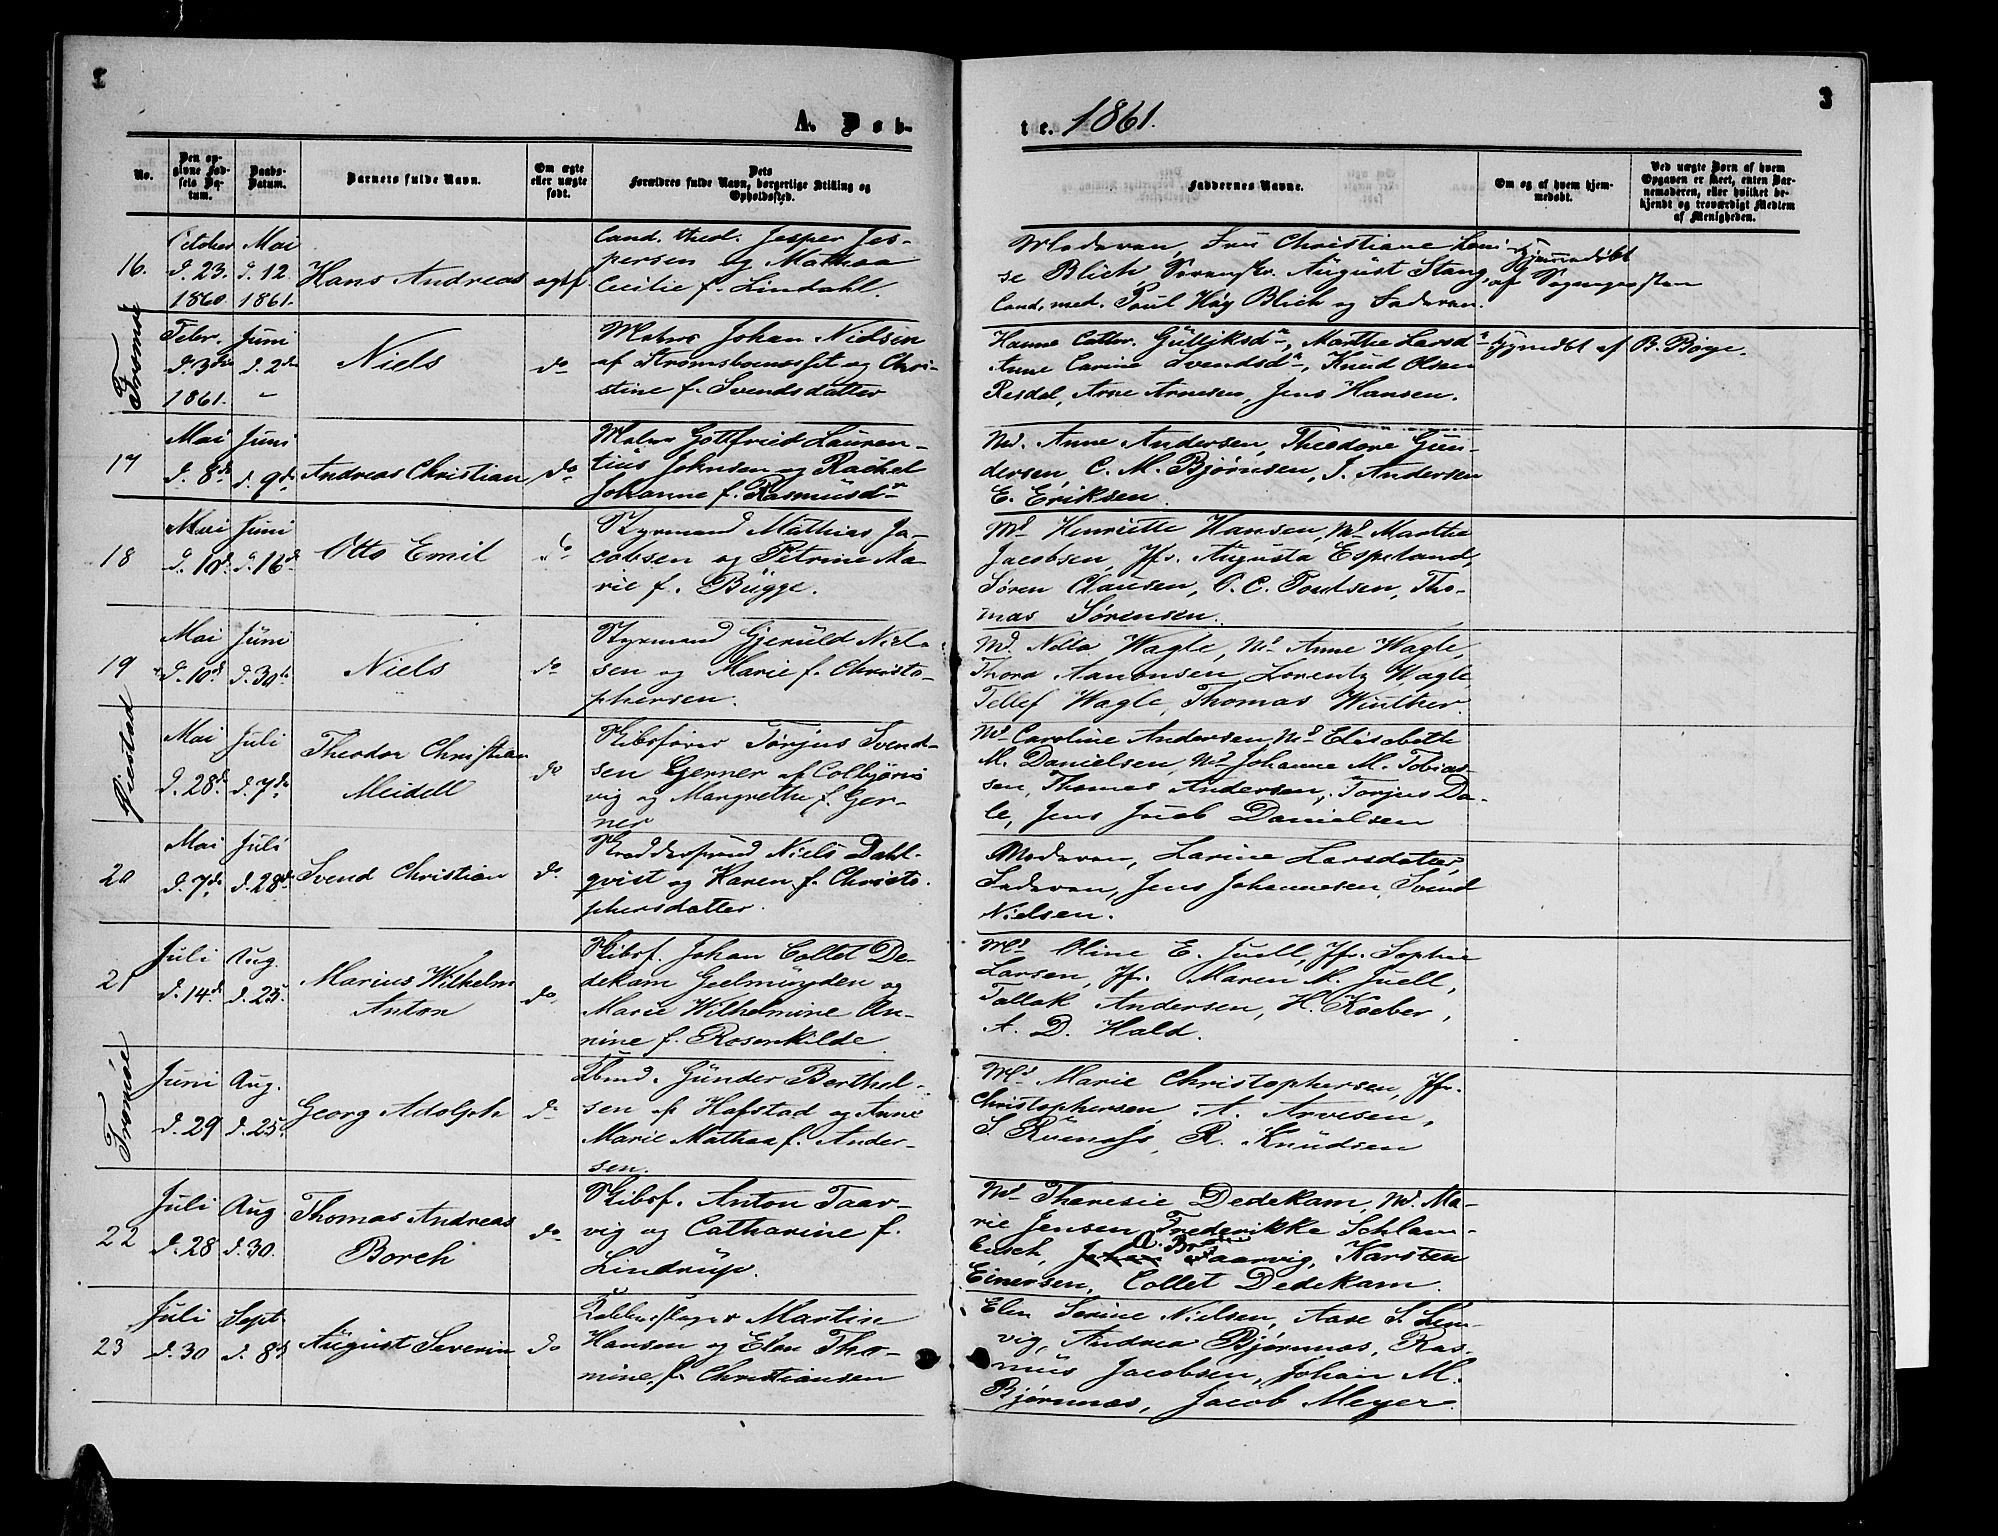 3
A. Døb-
te. 1861.
No.
Den op-
givne Fød-
sels Da-
tum.
Daabs-
Datum.
Barnets fulde Navn.
Om ægte
eller uægte
født.
Dets
Forældres fulde Navn, borgerlige Stilling og
Opholdssted.
Faddernes Navne.
Om og af hvem hjem-
medøbt.
Ved uægte Børn af hvem
Opgaven er skeet, enten Bar-
nemoderen, eller hvilket be-
kjendt og troværdigt Medlem
af Menigheden.
16.
October
d. 23.
1860.
Mai
d. 12.
1861.
Hans Andreas
ægtf.
Cand. theol. Jesper Jes-
persen og Mathea
Cecilie f. Lindahl.
Moderen, Fru Christiane Loui-
se Blich August Stang,
Cand. med. Poul Høy Blich og Faderen.
Hjemmedøbt
af Sognepresten
Tromøe
Febr.
d. 3die
1861.
Juni
d. 2den
Niels
do
Matros Johan Nielsen
af Strømsboenesset og Chri-
stine f. Svendsdatter
Hanne Cathr. Gulliksdr, Marthe Larsdr
Anne Carine Svendsdr, Knud Olsen
Resdal, Arne Arnesen, Jens Hansen.
hjmdbt af B. Børge.
17
Mai
d. 8de
Juni
d. 9de
Andreas Christian
do
Matros Gottfried Lauren-
tius Johnsen og Rachel
Johanne f. Rasmusdr
Md. Anne Andersen, Theodore Gun-
dersen, C. M. Bjørnsen, J. Andersen
E. Eriksen.
18
Mai
d. 10d.
Juni
d. 16d.
Otto Emil
do
Styrmand Mathias Ja-
cobsen og Petrine Ma-
rie f. Bügge.
Md Henriette Hansen, Md Marthe
Jacobsen, Jfr. Augusta Espeland,
Søren Clausen, P. C. Poulsen, Tho-
mas Sørensen.
19
Mai
d. 10d.
Juni
d. 30te
Niels
do
Styrmand Gjeruld Niel-
sen og Marie f. Christo-
phersen.
Md. Nella Wagle, Md. Anne Wagle,
Thora Aanonsen, Lorentz Wagle,
Tellef Wagle, Thomas Winther.
Øiestad
Mai
d. 28d.
Juli
d. 7de
Theodor Christian
Meidell
do
Skibsfører Tørjus Svend-
sen Gerner af Colbjørns
vig og Margrethe f. Ger-
ner
Md Caroline Andersen, Md Elisabeth
M. Danielsen, Md Johanne M. Tobias-
sen, Thomas Andersen, Torjus Da-
le, Jens Jacob Danielsen
20
Mai
d. 7de
Juli
d. 28d.
Svend Christian
do.
Niels Dahl-
qvist og Karen f. Christo-
phersdatter.
Moderen, Larine Larsdatter,
Faderen, Jens Johannesen, Svend
Nielsen.
21
Juli
d. 14d.
Aug.
d. 25.
Marius Wilhelm
Anton
do.
Skibsf. Johan Collet De-
dekam Geelmuyden og
Marie Wilhelmine An-
nine f. Rosenkilde
Md Oline E. Juell, Jfr. Sophie
Larsen, Jfr. Maren M. Juell,
Tallak Andersen, H. Køeber,
A. D. Hald.
Tromøe
Juni
d. 29
Aug.
d. 25.
Georg Adolph
do
Gunder Berthel-
sen af Hafstad og Anne
Marie Mathea f. Ander-
sen.
Md Marie Christophersen, Jfr.
Christophersen, A. Arvesen,
S. R. Knudsen
22
Juli
d. 28
Aug
d. 30.
Thomas Andreas
Borch
do
Skibsf. Anton Taar-
vig og Catharine f.
Lindrup.
Md Theresie Dedekam, Md. Ma-
rie Jensen, Frederikke Schlam-
busch, Taarvig, Karsten
Einersen, Collet Dedekam.
23
Juli
d. 30
Sept.
d. 8d.
August Severin
do
Martin
Hansen og Elen Tho-
mine f. Christiansen
Elen Serine Nielsen, Aase S. Lem-
vig, Andrea Bjørnnæs, Ras-
mus Jacobsen, Johan M.
Bjørnnæs, Jacob Meyer